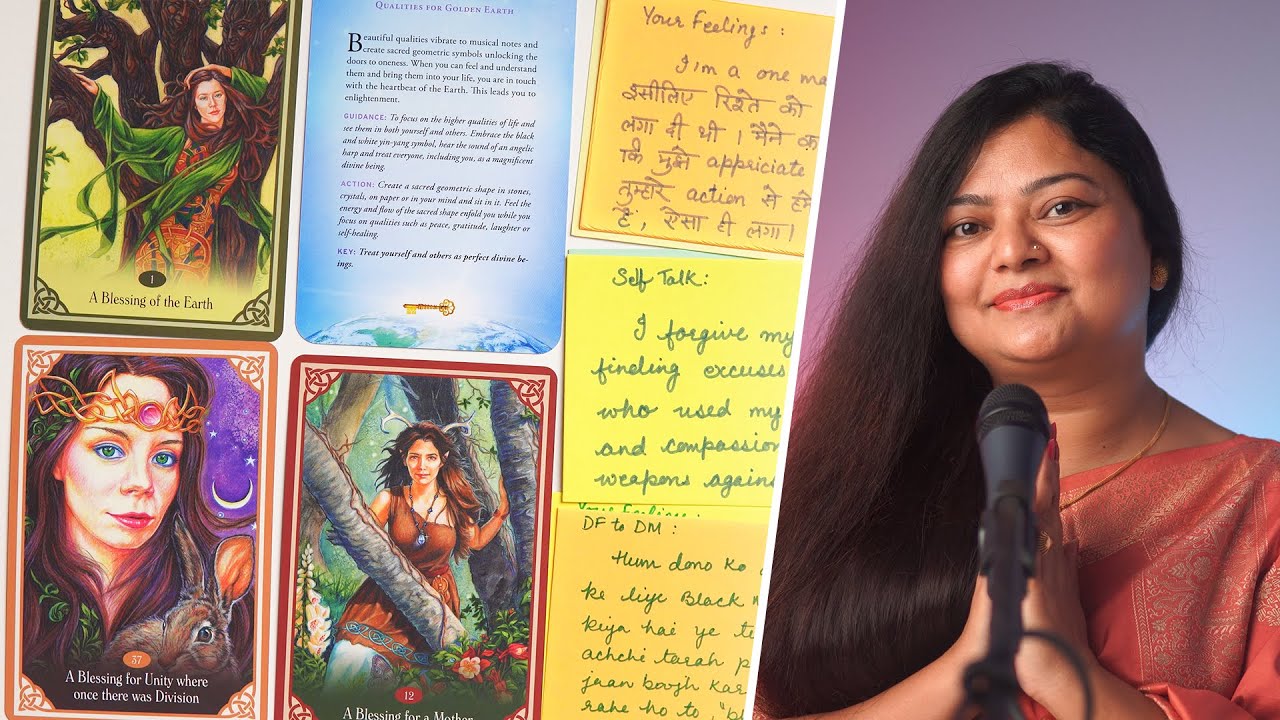 1
A Blessing of the Earth
QUALITIES FOR GOLDEN EARTH
Beautiful qualities vibrate to musical notes and
create sacred geometric symbols unlocking the
doors to oneness. When you can feel and understand
them and bring them into your life, you are in touch
with the heartbeat of the Earth. This leads you to
enlightenment.
GUIDANCE: To focus on the higher qualities of life and
see them in both yourself and others. Embrace the black
and white yin-yang symbol, hear the sound of an angelic
harp and treat everyone, including you, as a magnificent
divine being.
ACTION: Create a sacred geometric shape in stones,
crystals, on paper or in your mind and sit in it. Feel the
energy and flow of the sacred shape enfold you while you
focus on qualities such as peace, gratitude, laughter or
self-healing.
KEY: Treat yourself and others as perfect divine be-
ings.
37
A Blessing for Unity where
once there was Division
12
A Blessing for a Mother
Your Feelings :
I'm a one ma
इसीलिए रिश्ते को
लगा दी थी । मैंने
कि मुझे appriciate
तुम्हारे action से
है, ऐसा ही लगा।
Self Talk:
I forgive my
finding excuses
who used my
and compassion
weapons again
Your Feelings:
DF to DM :
Hum dono ko
ke liye Black
kiya hai ye te
achche tarah p
jaan boojh kar
rahe ho to, "bl